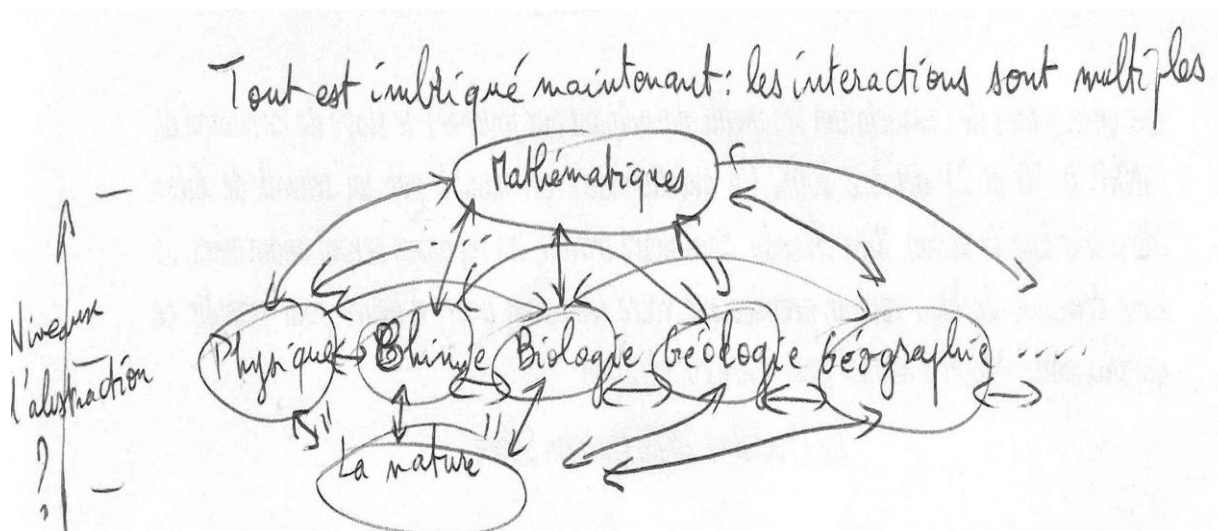 Tout est imbriqué maintenant : les interactions sont multiples
Mathématiques
Niveaux
d'abstraction
?
Physique Chimie Biologie Géologie Géographie .....
La nature